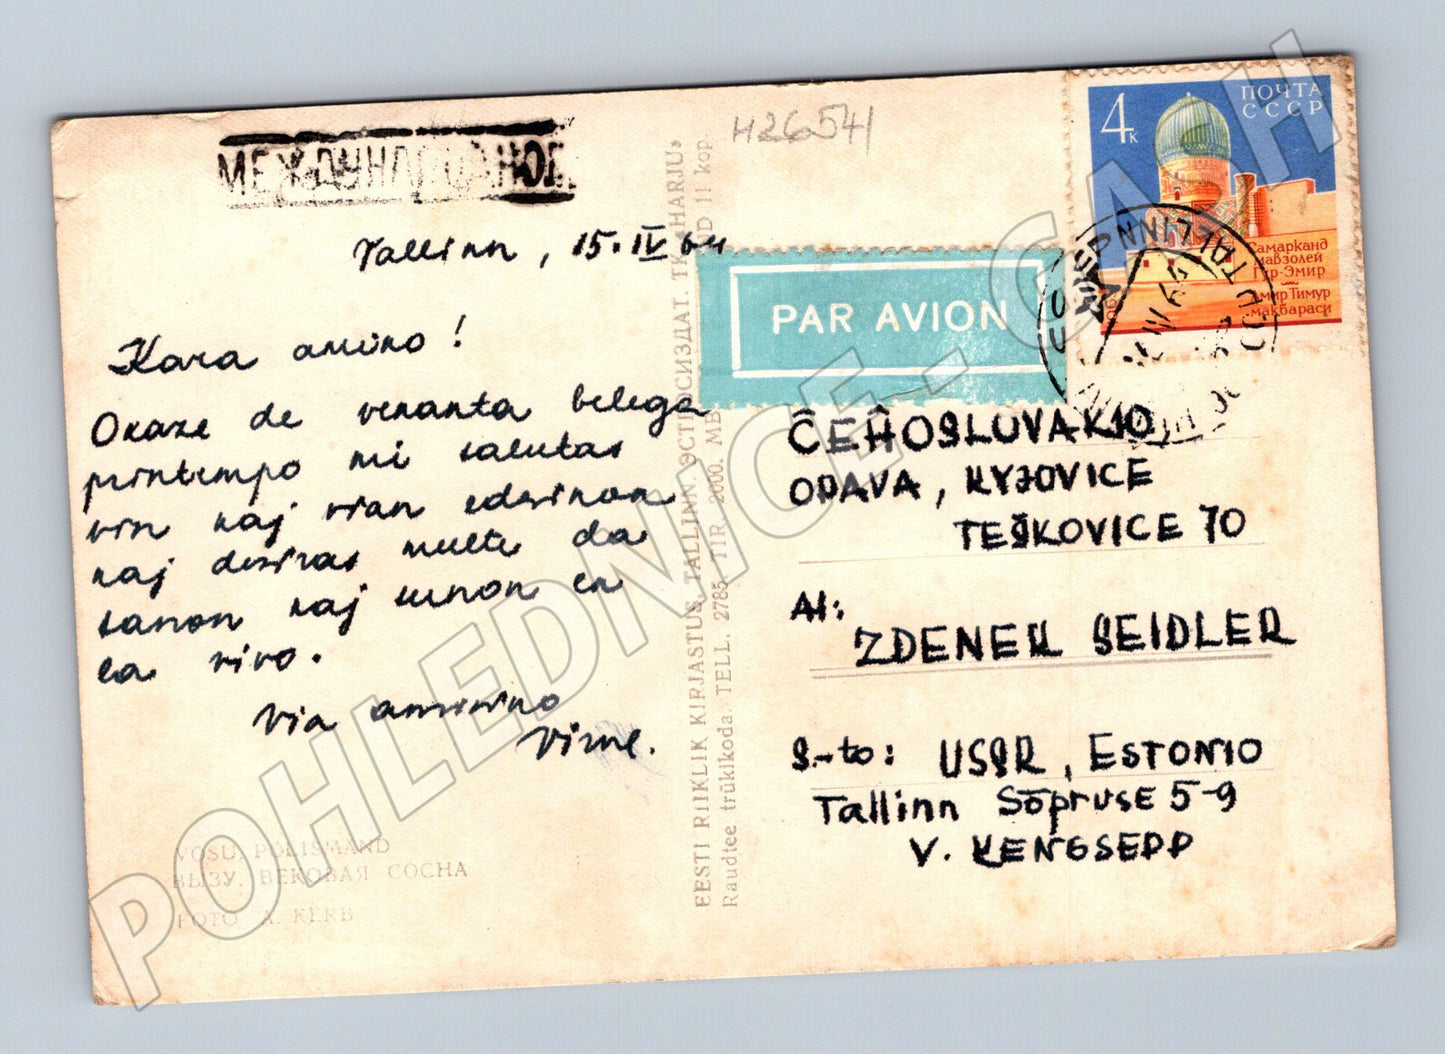 МЕЖДУНАРОДНОЕ
Tallinn, 15.IV 64
Kara amino!
Okaze de venanta belega
printempo mi salutas
vin kaj vian edzinon
kaj deziras multe da
sanon kaj sunon en
la vivo.
Via amikino
Virve.
VÕSU. PÕLISMÄND
ВЫЗУ. ВЕКОВАЯ СОСНА
FOTO A. KERB
EESTI RIIKLIK KIRJASTUS, TALLINN. ЭСТГОСИЗДАТ. TK „HARJU»
Raudtee trükikoda. TELL. 2785. TIR. 2000. MB 11 kop
H26541
PAR AVION
4к
ПОЧТА
СССР
Самарканд
мавзолей
Гур-Эмир
Амир Темур
мақбараси
TALLINN
СССР
ČEĤOSLOVAKIO
OPAVA, KYJOVICE
TEŠKOVICE 70
Al:
ZDENEK SEIDLER
S-to: USSR, ESTONIO
Tallinn Sõpruse 5-9
V. KENGSEPP
POHLEDNICE_CAH